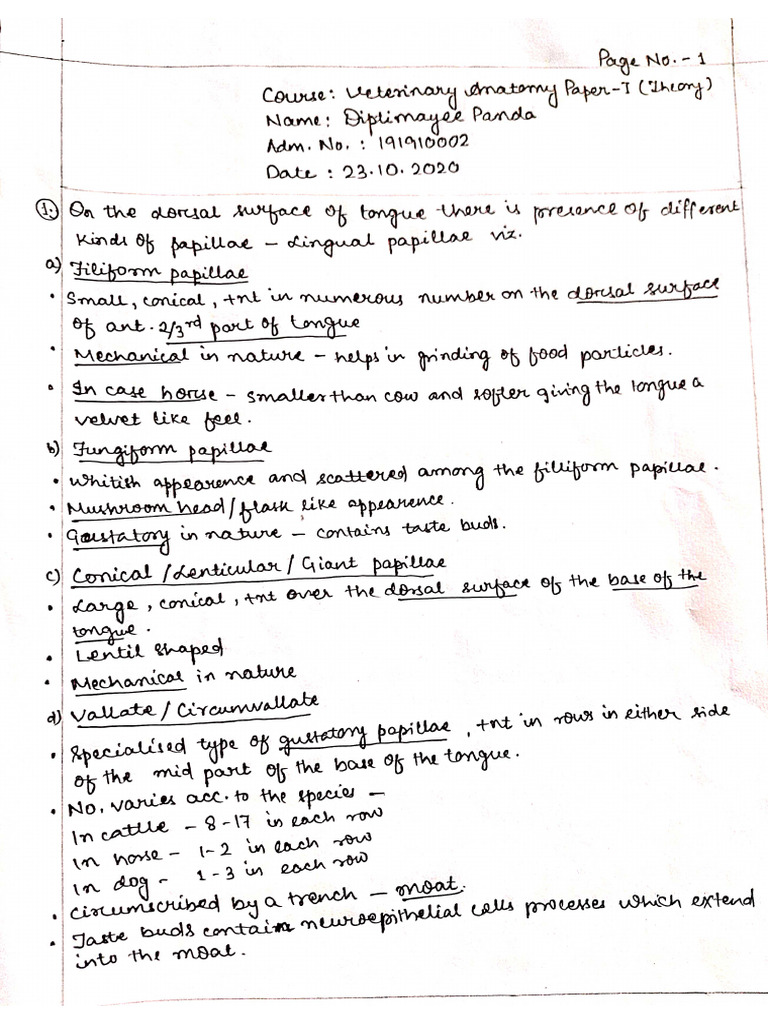 Page No.- 1
Course: Veterinary Anatomy Paper-I (Theory)
Name: Diptimayee Panda
Adm. No. : 191910002
Date : 23.10.2020
1. On the dorsal surface of tongue there is presence of different
kinds of papillae – Lingual papillae viz.
a) Filiform papillae
• Small, conical, +nt in numerous number on the dorsal surface
of ant. 2/3rd part of tongue
• Mechanical in nature – helps in grinding of food particles.
• In case horse – smaller than cow and softer giving the tongue a
velvet like feel.
b) Fungiform papillae
• Whitish appearence and scattered among the filliform papillae.
• Mushroom head/flask like appearence.
• Gustatory in nature – contains taste buds.
c) Conical /Lenticular / Giant papillae
• Large, conical, +nt over the dorsal surface of the base of the
tongue.
• Lentil shaped
• Mechanical in nature
d) Vallate / Circumvallate
• Specialised type of gustatory papillae, +nt in rows in either side
of the mid part of the base of the tongue.
• No. varies acc. to the species –
In cattle – 8-17 in each row
In horse – 1-2 in each row
In dog – 1-3 in each row
• Circumscribed by a trench – moat.
• Taste buds contain neuroepithelial cells processes which extend
into the moat.